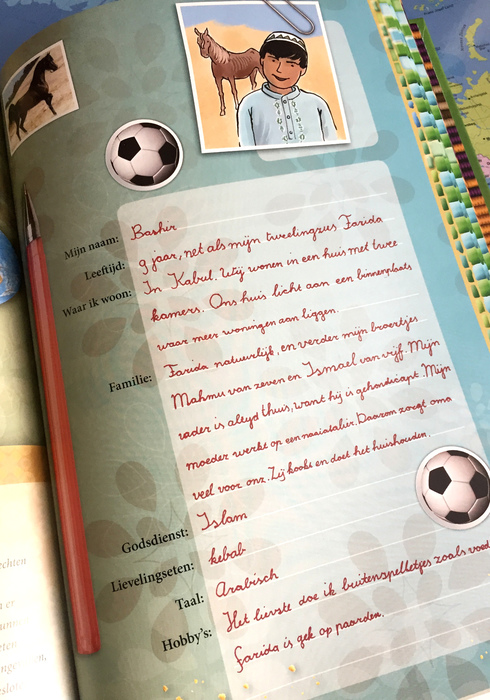 Mijn naam: Bashir
Leeftijd: 9 jaar, net als mijn tweelingzus Farida
Waar ik woon: In Kabul. Wij wonen in een huis met twee
kamers. Ons huis licht aan een binnenplaats
waar meer woningen aan liggen.
Familie: Farida natuurlijk, en verder mijn broertjes
Mahmu van zeven en Ismael van vijf. Mijn
vader is altyd thuis, want hij is gehandicapt. Mijn
moeder werkt op een naaiatalier. Daarom zorgt oma
veel voor onz. Zij kookt en doet het huishouden.
Godsdienst: Islam
Lievelingseten: kebab
Taal: Arabisch
Hobby's: Het lievste doe ik buitenspelletjes zoals voed
Farida is gek op paarden.
echten